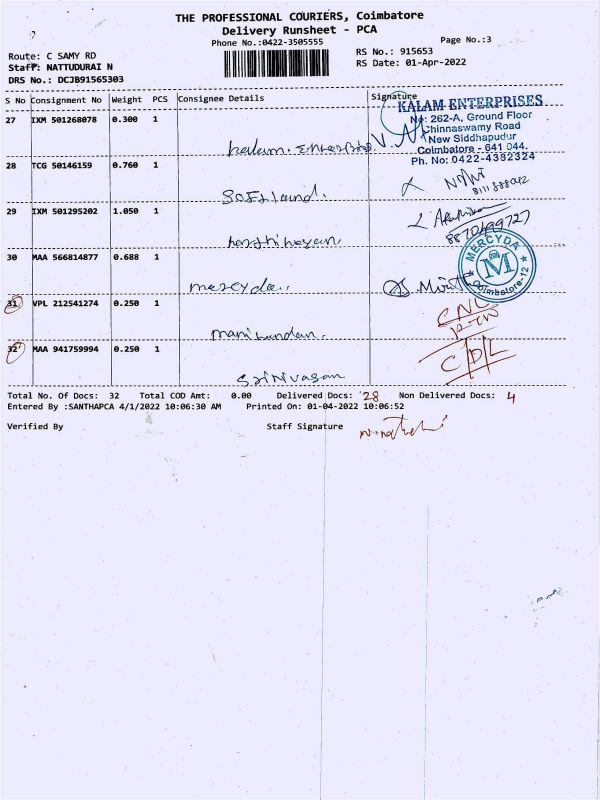 THE PROFESSIONAL COURIERS, Coimbatore
Delivery Runsheet - PCA
Phone No.:0422-3505555
Page No.:3
Route: C SAMY RD
RS No.: 915653
Staff: NATTUDURAI N
RS Date: 01-Apr-2022
DRS No.: DCJB91565303
S No Consignment No Weight PCS Consignee Details Signature
KALAM ENTERPRISES
No: 262-A, Ground Floor
Chinnaswamy Road
New Siddhapudur
Coimbatore - 641 044.
Ph. No: 0422-4382324
27 IXM 501268078 0.300 1
kalam.
28 TCG 50146159 0.760 1
29 IXM 501295202 1.050 1
8870499727
30 MAA 566814877 0.688 1
mercyda..
MERCYDA
M
Coimbatore-12
31 VPL 212541274 0.250 1
manikandan.
CNC
32 MAA 941759994 0.250 1
C/D/L
Srinivasan
Total No. Of Docs: 32 Total COD Amt: 0.00 Delivered Docs: 28 Non Delivered Docs: 4
Entered By :SANTHAPCA 4/1/2022 10:06:30 AM Printed On: 01-04-2022 10:06:52
Verified By Staff Signature